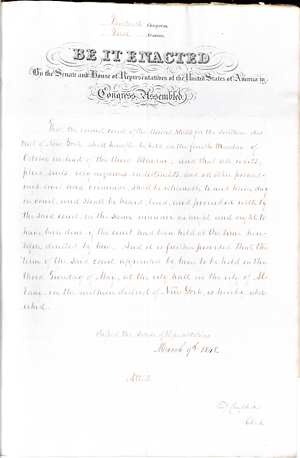 Thirtieth Congress,
First Session,
BE IT ENACTED
By the Senate and House of Representatives of the United States of America in
Congress Assembled
That the circuit court of the United States for the southern dis
trict of New York shall hereafter be held on the fourth Monday of
October instead of the third Monday; and that all writs,
pleas, suits, recognizances indictments, and all other proceed-
ings, civil and criminal, shall be returnable to and have day
in court, and shall be heard, tried, and proceeded with by
the said court, in the same manner as might and ought to
have been done if the court had been held at the time here-
tofore directed by law. And it is further provided that the
term of the said court appointed by law to be held on the
third Tuesday of May, at the city hall in the city of Al-
bany, in the northern district of New York, is hereby abol
ished.
Passed the House of Representatives
March 9th 1848.
Attest
Campbell
Clerk